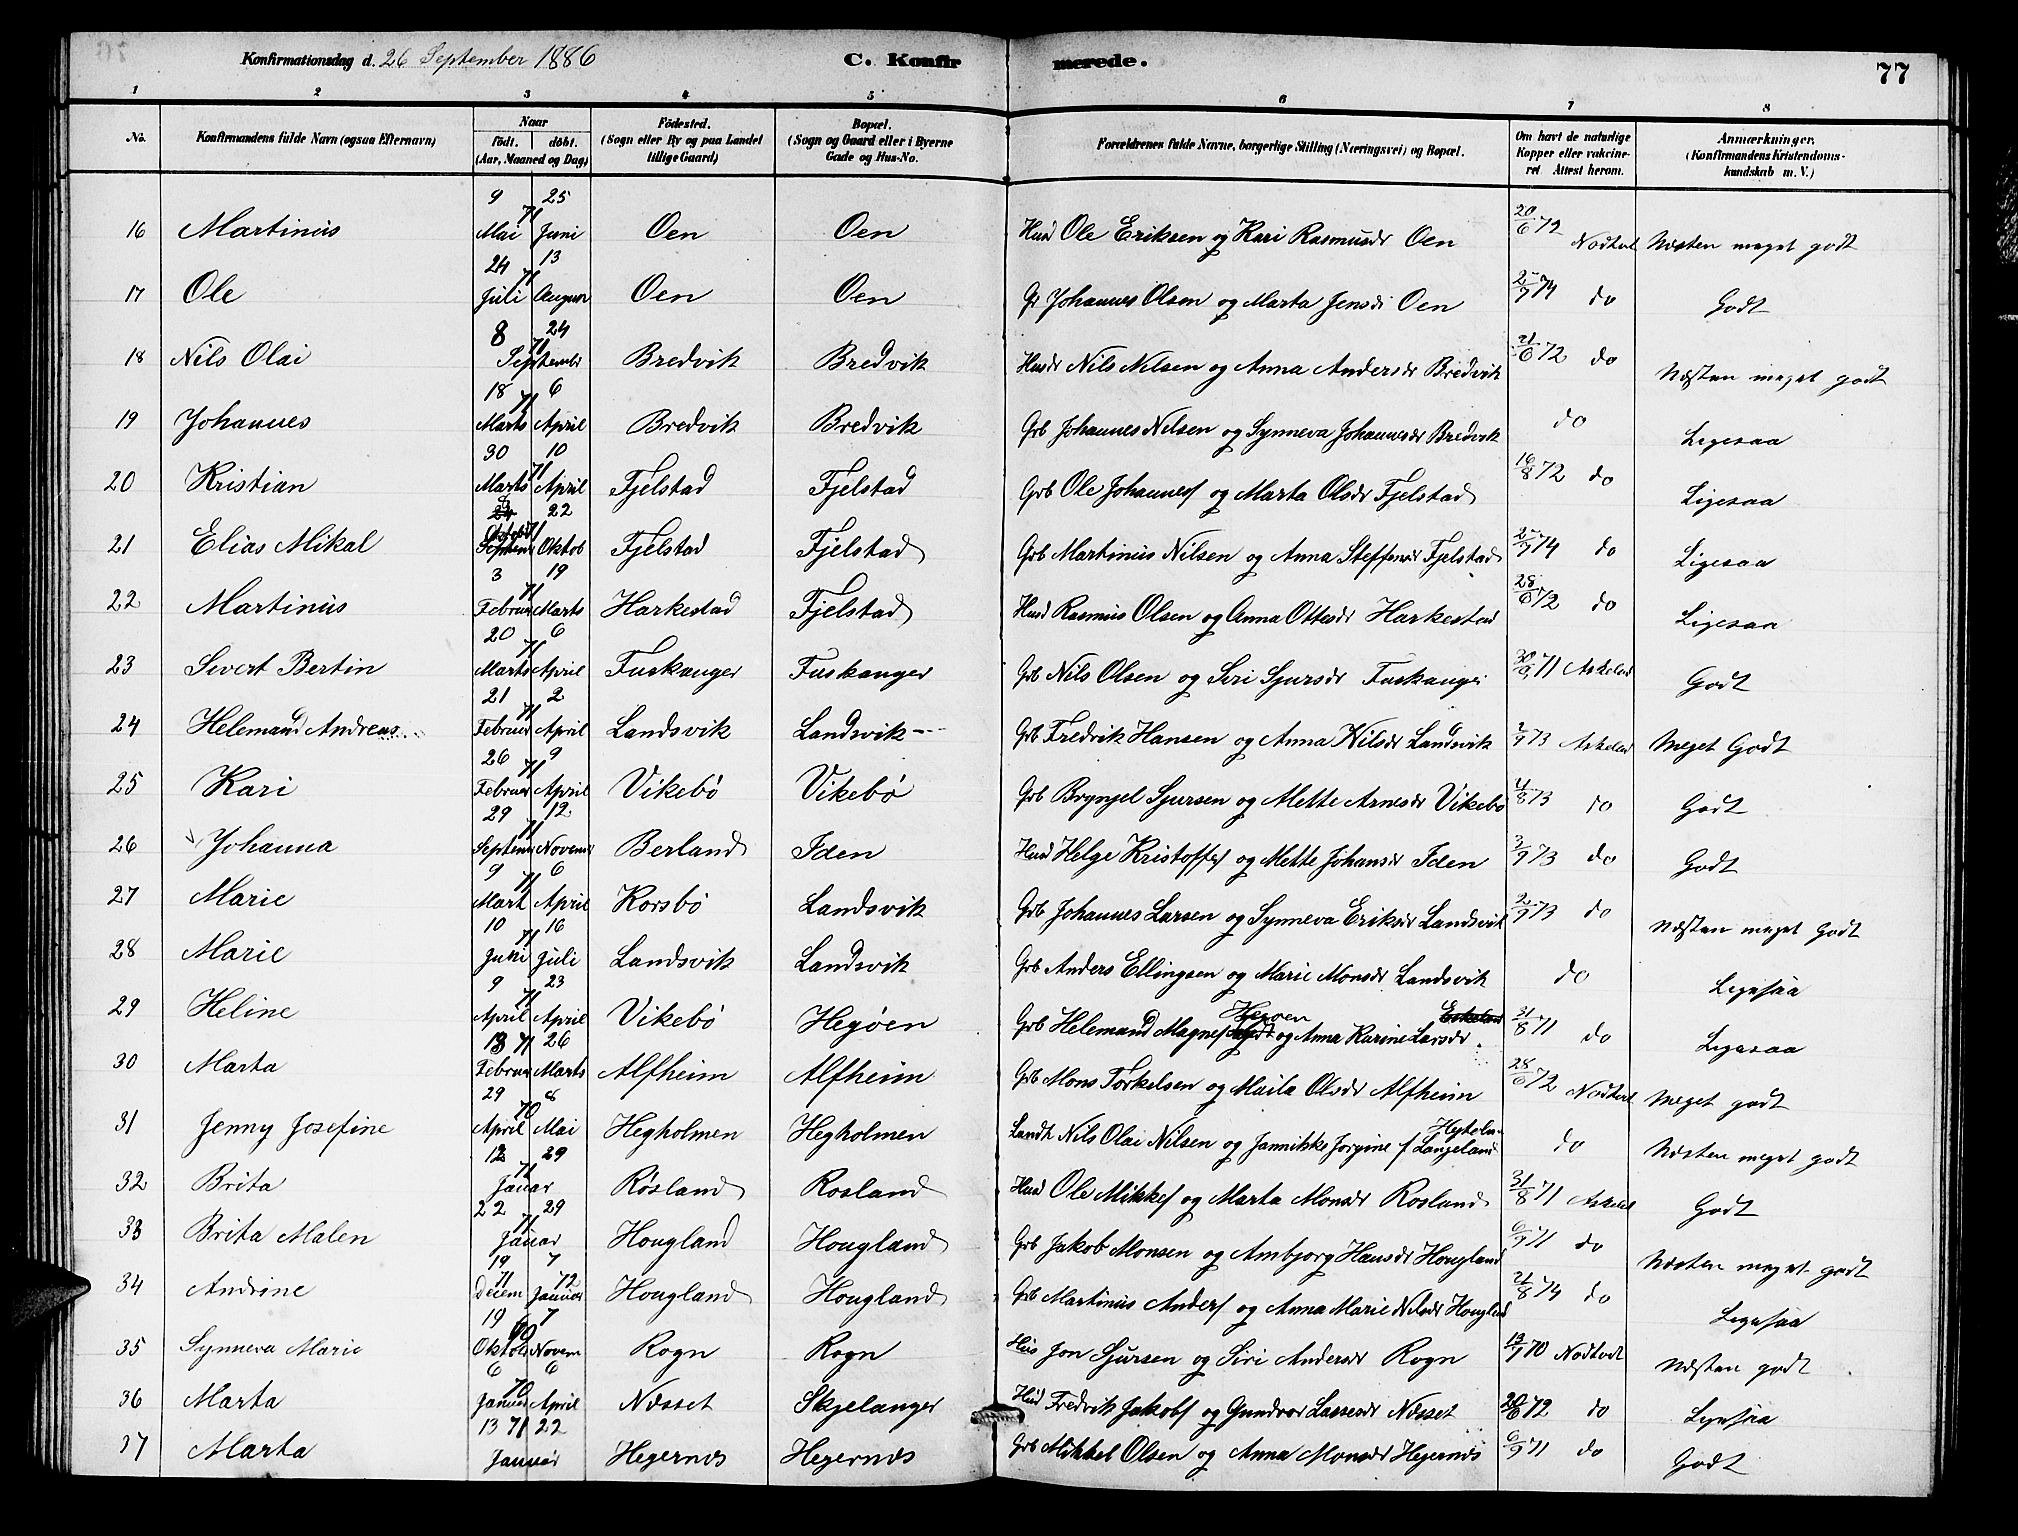 Konfirmationsdag d. 26 September 1886 C. Konfirmerede. 77
1 2 3 4 5 6 7 8
No. Konfirmandens fulde Navn (ogsaa Efternavn) Naar födt. döbt. (Aar, Maaned og Dag) Födested. (Sogn eller By og paa Landet tillige Gaard) Bopæl. (Sogn og Gaard eller i Byerne Gade og Hus-No. Forældrenes fulde Navne, borgerlige Stilling (Næringsvei) og Bopæl. Om havt de naturlige Kopper eller vakcineret Attest herom. Anmærkninger. (Konfirmandens Kristendomskundskab m. V.)
16 Martinus 9 Mai 71 25 Juni Oen Oen Husd Ole Eriksen og Kari Rasmusdr Oen 20/6 72 Nodtvet Næsten meget godt
17 Ole 24 Juli 71 13 August Oen Oen Gr Johannes Olsen og Marta Jensdr Oen 2/9 74 do Godt
18 Nils Olai 8 71 24 September Bredvik Bredvik Husdr Nils Nilsen og Anna Andersdr Bredvik 21/6 72 do Næsten meget godt
19 Johannes 18 Marts 71 6 April Bredvik Bredvik Grb Johannes Nilsen og Synneva Johannesdr Bredvik do Ligesaa
20 Kristian 30 Marts 71 10 April Fjelstad Fjelstad Grb Ole Johannesf og Marta Olsdr Fjelstad 16/8 72 do Ligesaa
21 Elias Mikal Oktober 71 22 Oktob Fjelstad Fjelstad Grb Martinus Nilsen og Anna Steffensdr Fjelstad 2/9 74 do Ligesaa
22 Martinus 3 Februar 71 19 Marts Harkestad Fjelstad Husd Rasmus Olsen og Anna Ottesdr Harkestad 28/6 72 do Ligesaa
23 Sivert Bertin 20 Marts 71 6 April Fuskanger Fuskanger Grb Nils Olsen og Siri Sjursdr Fuskanger 71 Askeland Godt
24 Helemand Andreas 21 Februar 71 2 April Landsvik Landsvik Grb Fredrik Hansen og Anna Nilsdr Landsvik 2/9 73 Askeland Meget Godt
25 Kari 26 Februar 71 9 April Vikebø Vikebø Grb Brynjel Sjursen og Mette Arnesdr Vikebø 4/8 73 do Godt
26 Johanna 29 Septem 71 12 Novem Berland Iden Husd Helge Kristoffersf og Mette Johansdr Iden 2/9 73 do Godt
27 Marie 9 Mart 71 6 April Korsbö Landsvik Grb Johannes Larsen og Synneva Eriksdr Landsvik 2/9 73 do Næsten meget Godt
28 Marie 10 Juni 71 16 Juli Landsvik Landsvik Grb Anders Ellingsen og Marie Monsdr Landsvik do Ligesaa
29 Heline 9 April 71 23 April Vikebö Hegöen Grb Helemand Magnesf Hegøen og Anna Karine Larsdr 31/8 71 do Ligesaa
30 Marta 13 Februar 71 26 Marts Alfheim Alfheim Grb Mons Torkelsen og Maila Olsdr Alfheim 28/6 72 Nodtvet Meget godt
31 Jenny Josefine 29 April 70 8 Mai Hegholmen Hegholmen Landh Nils Olai Nilsen og Jannikke Jorgine f Langeland do Næsten meget godt
32 Brita 12 71 29 Januar Røsland Rosland Husd Ole Mikkelsf og Marta Monsdr Rosland 31/8 71 Askeld Godt
33 Brita Malen 22 71 29 Januar Hougland Hougland Grb Jakob Monsen og Ambjorg Hansdr Hougland 6/9 71 do Næsten meget godt
34 Andrine 19 Decem 71 7 Januar 72 Hougland Hougland Grb Martinus Andersf og Anna Marie Nilsdr Hougland 21/8 74 do Ligesaa
35 Synneva Marie 19 Oktob 69 7 Novem Rogn Rogn Hus Jon Sjursen og Siri Andersdr Rogn 70 Nodtvedt Næsten godt
36 Marta 6 Januar 70 6 April Næsset Skjelanger Husd Fredrik Jakobsf og Gundvor Lassesdr Næsset 20/6 72 do Ligesaa
37 Marta 13 71 22 Januar Hegernæs Hegernæs Grb Mikkel Olsen og Anna Monsdr Hegernæs 6/9 71 do Godt